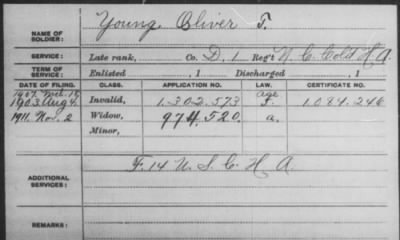 NAME OF SOLDIER: Young Oliver T.
SERVICE: Late rank, Co. D, 1 Reg't N. C. Cold H A.
TERM OF SERVICE: Enlisted , 1 Discharged , 1
DATE OF FILING. CLASS. APPLICATION NO. LAW. CERTIFICATE NO.
1907. age
1903 Aug 4. Invalid, 1.302.573 1.084.246
1911. Nov. 2 Widow, 974.520. a.
Minor,
ADDITIONAL SERVICES: F. 14 U. S. C. H. A.
REMARKS: